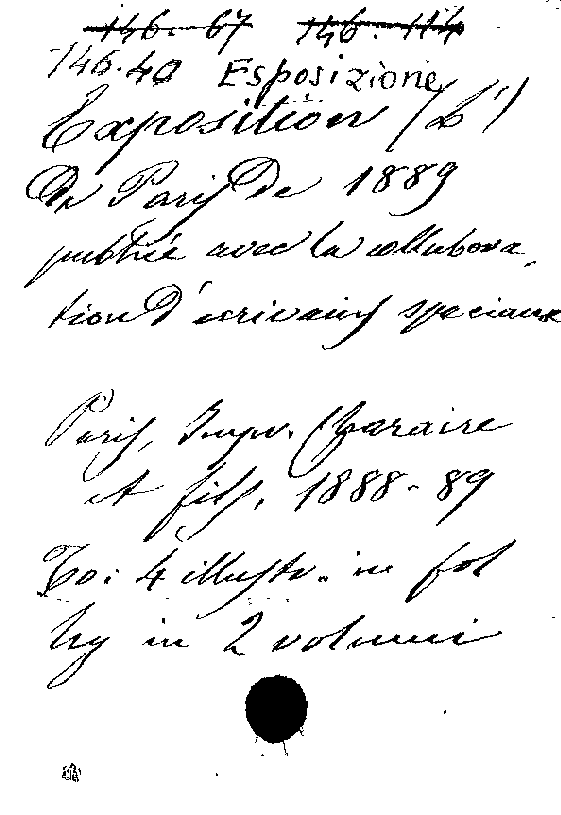 146-67 146-114
146.40 Esposizione
Exposition (L')
De Paris De 1889
publiée avec la collabora
tion D'écrivains speciaux
Paris, Imp. Charaire
et fils, 1888-89
To: 4 illustr. in fol
leg in 2 volumi